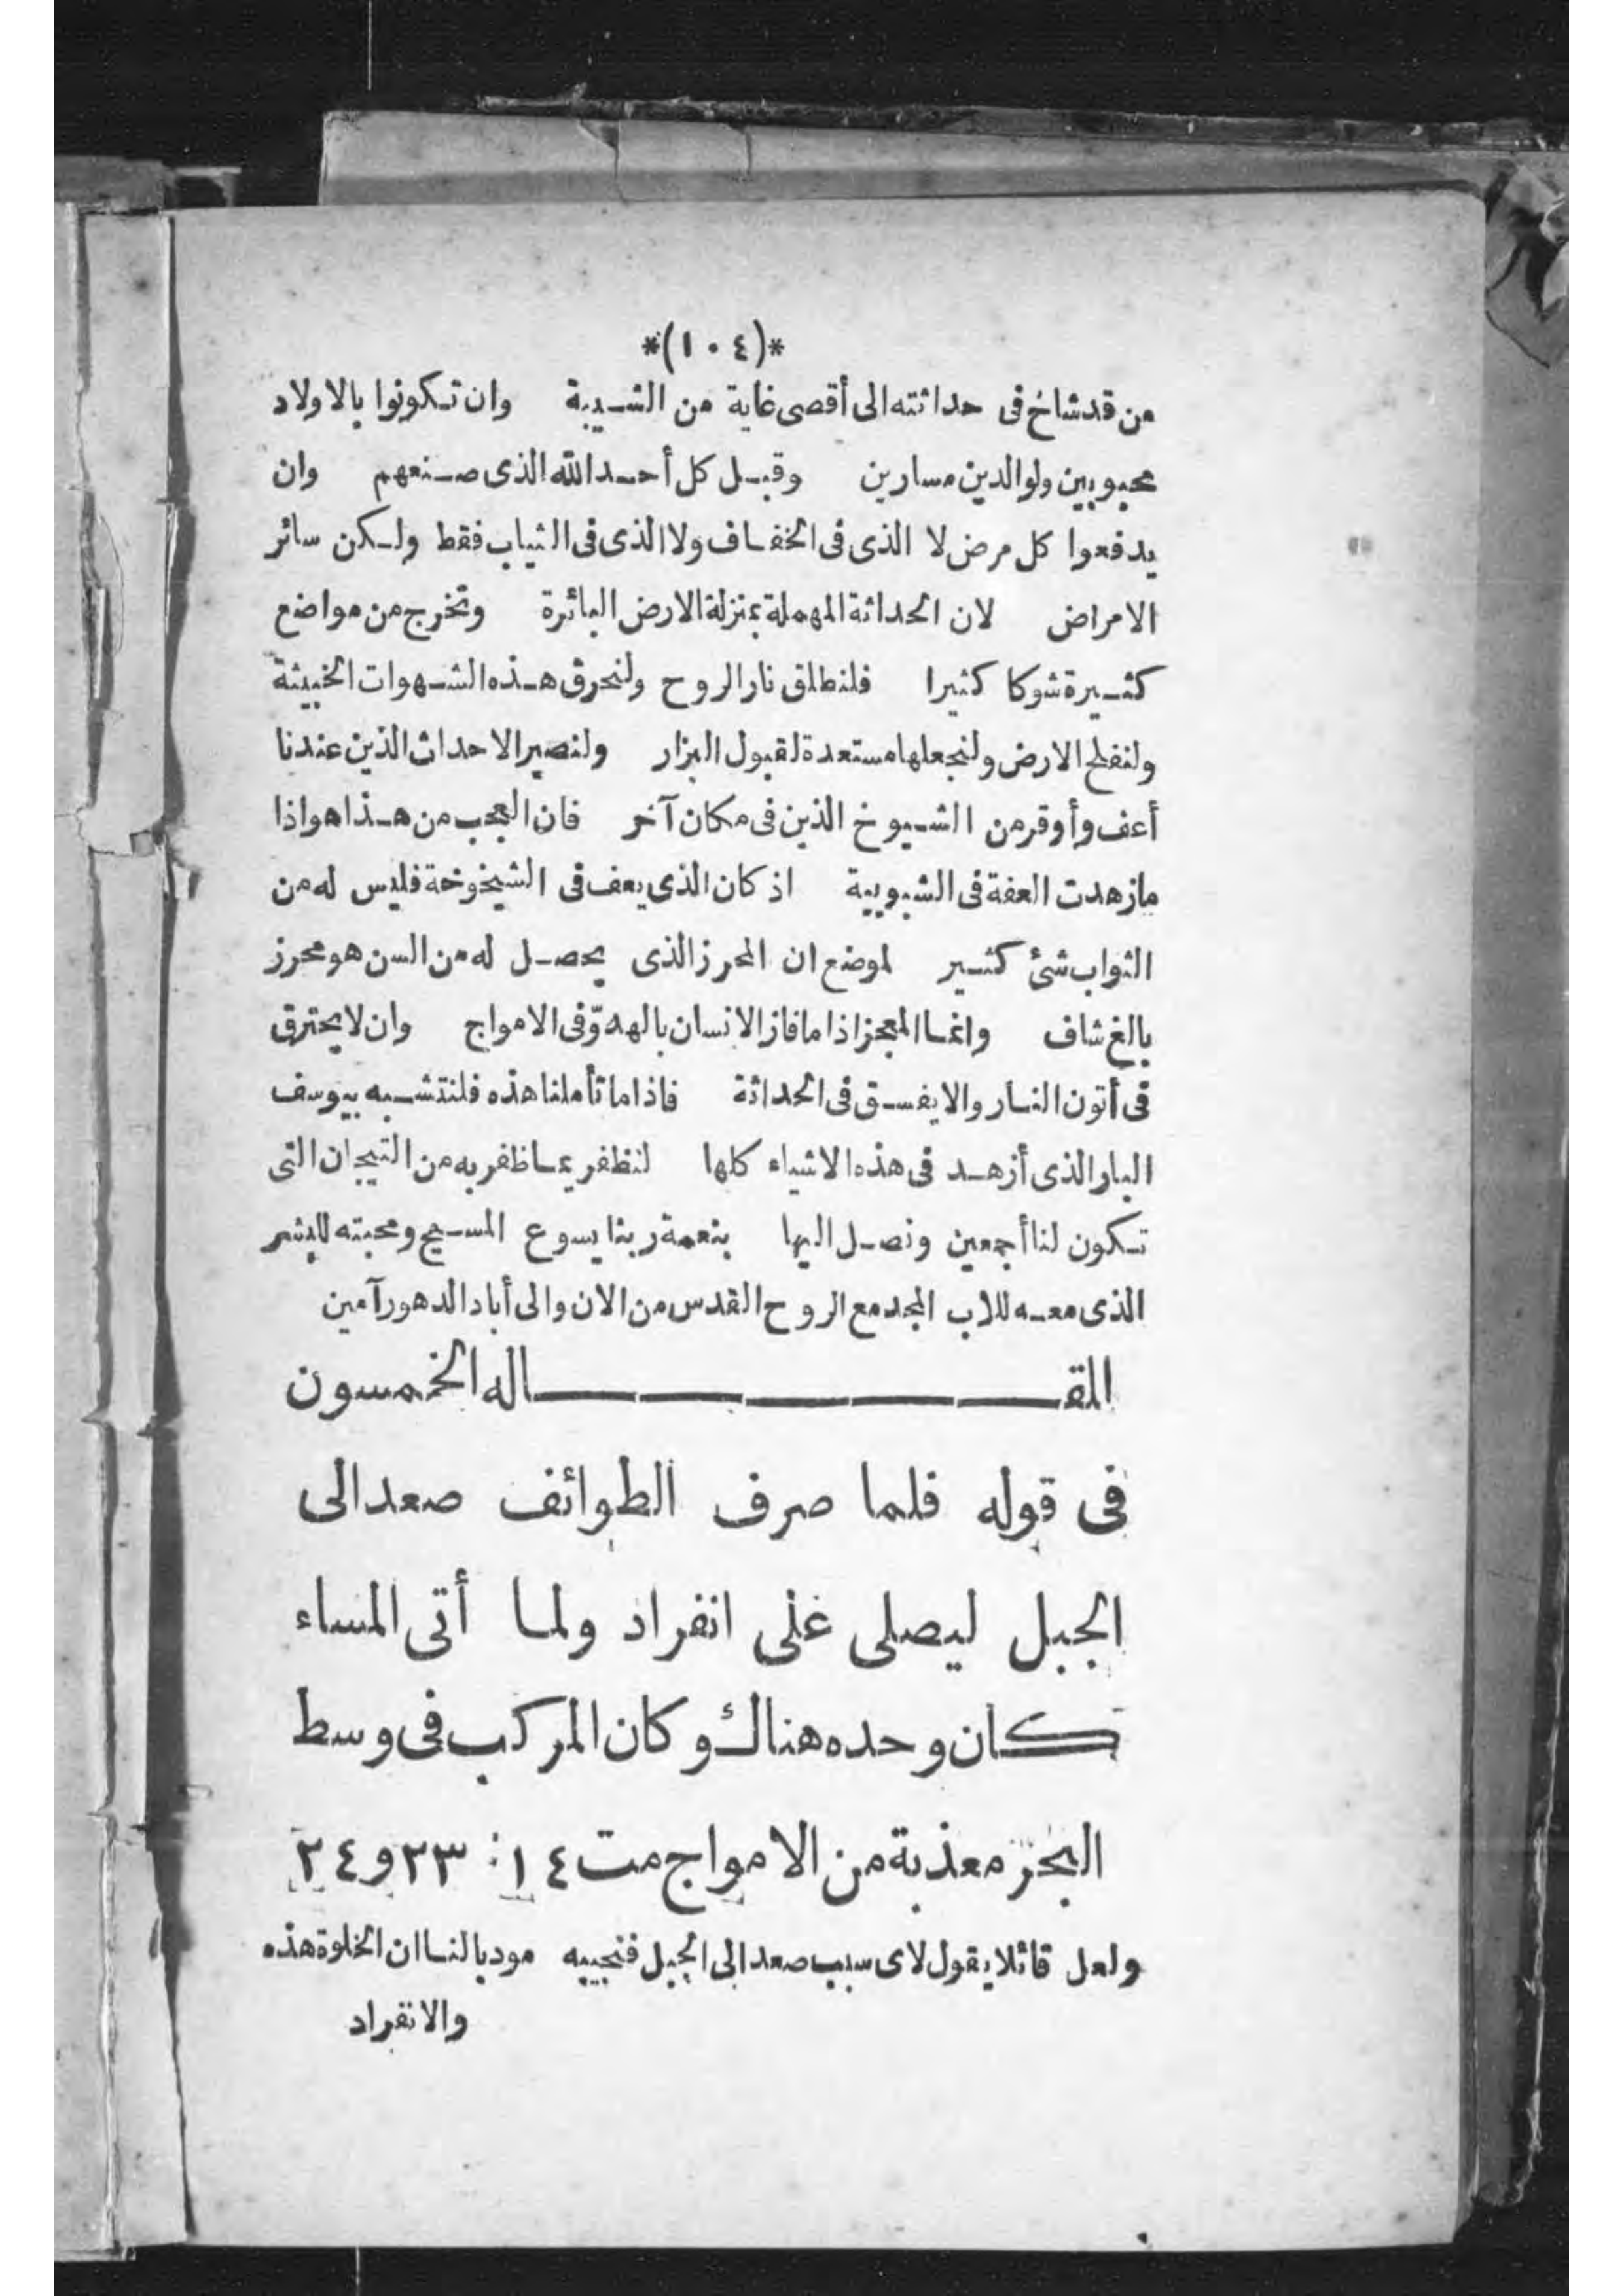 *(١٠٤)*
من قد شاخ فى حداثته الى أقصى غاية من الشيبة وان تكونوا بالاولاد
محبوبين ولوالدين مسارين وقبل كل أحد الله الذى صنعهم وان
يدفعوا كل مرض لا الذى فى الخفاف ولا الذى فى الثياب فقط ولكن سائر
الامراض لان الحداثة المهملة بمنزلة الارض البائرة وتخرج من مواضع
كثيرة شوكا كثيرا فلنطلق نار الروح ولنحرق هذه الشهوات الخبيثة
ولنفلح الارض ولنجعلها مستعدة لقبول البزار ولنصير الاحداث الذين عندنا
أعف وأوقر من الشيوخ الذين فى مكان آخر فان العجب من هذا هو اذا
مازهدت العفة فى الشبوبية اذ كان الذى يعف فى الشيخوخة فليس له من
الثواب شئ كثير لموضع ان المحرز الذى يحصل له من السن هو محرز
بالغ شاف وانما المعجز اذا ما فاز الانسان بالهدوّ فى الامواج وان لا يحترق
فى أتون النار والا يفسق فى الحداثة فاذا ما تأملنا هذه فلنتشبه بيوسف
البار الذى أزهد فى هذه الاشياء كلها لنظفر بما ظفر به من التيجان التى
تكون لنا أجمعين ونصل اليها بنعمة ربنا يسوع المسيح ومحبته للبشر
الذى معه للاب المجد مع الروح القدس من الان والى أباد الدهور آمين
المقاله الخمسون
فى قوله فلما صرف الطوائف صعد الى
الجبل ليصلى على انفراد ولما أتى المساء
كان وحده هناك وكان المركب فى وسط
البحر معذبة من الامواج مت ١٤: ٢٣ و٢٤
ولعل قائلا يقول لاى سبب صعد الى الجبل فنجيبه مودبا لنا ان الخلوة هذه
والانفراد